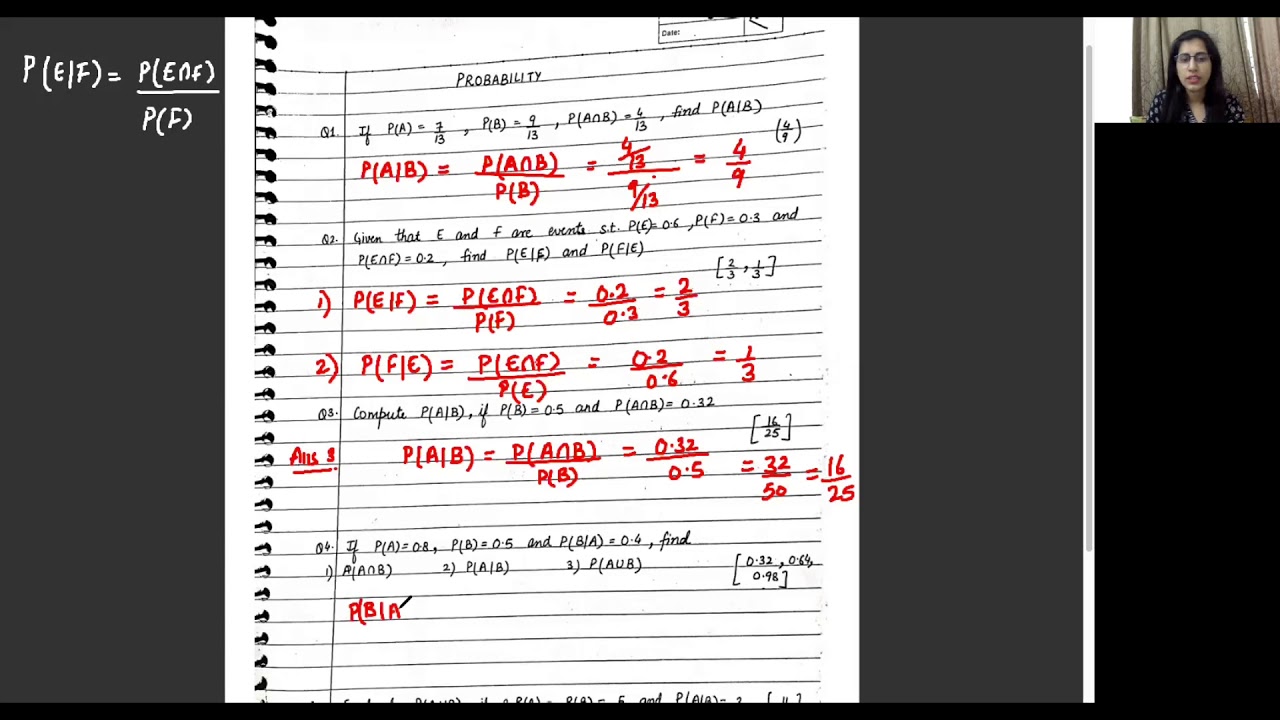 P(E|F) = P(E∩F) / P(F)
Date:
PROBABILITY
Q1. If P(A) = 7/13 , P(B) = 9/13 , P(A∩B) = 4/13 , find P(A|B)
(4/9)
P(A|B) = P(A∩B) / P(B) = 4/13 / 9/13 = 4/9
Q2. Given that E and F are events s.t. P(E)=0.6 , P(F)=0.3 and
P(E∩F) = 0.2 , find P(E|F) and P(F|E)
[2/3 , 1/3]
1) P(E|F) = P(E∩F) / P(F) = 0.2 / 0.3 = 2/3
2) P(F|E) = P(E∩F) / P(E) = 0.2 / 0.6 = 1/3
Q3. Compute P(A|B), if P(B) = 0.5 and P(A∩B) = 0.32
[16/25]
Ans 3 P(A|B) = P(A∩B) / P(B) = 0.32 / 0.5 = 32/50 = 16/25
Q4. If P(A)=0.8, P(B) = 0.5 and P(B|A) = 0.4 , find
1) P(A∩B) 2) P(A|B) 3) P(A∪B) [0.32 , 0.64,
0.98]
P(B|A